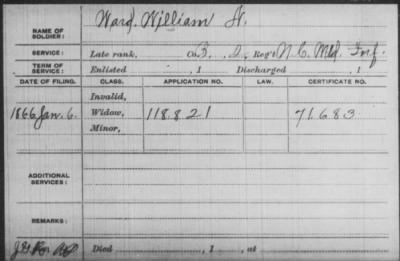 NAME OF SOLDIER: Ward, William H.
SERVICE: Late rank, Co. B, 2 Reg't N.C. Mtd. Inf.
TERM OF SERVICE: Enlisted , 1 Discharged , 1
DATE OF FILING. CLASS. APPLICATION NO. LAW. CERTIFICATE NO.
Invalid,
1866 Jan. 6. Widow, 118.821 71.683
Minor,
ADDITIONAL SERVICES:
REMARKS:
Died , 1 , at